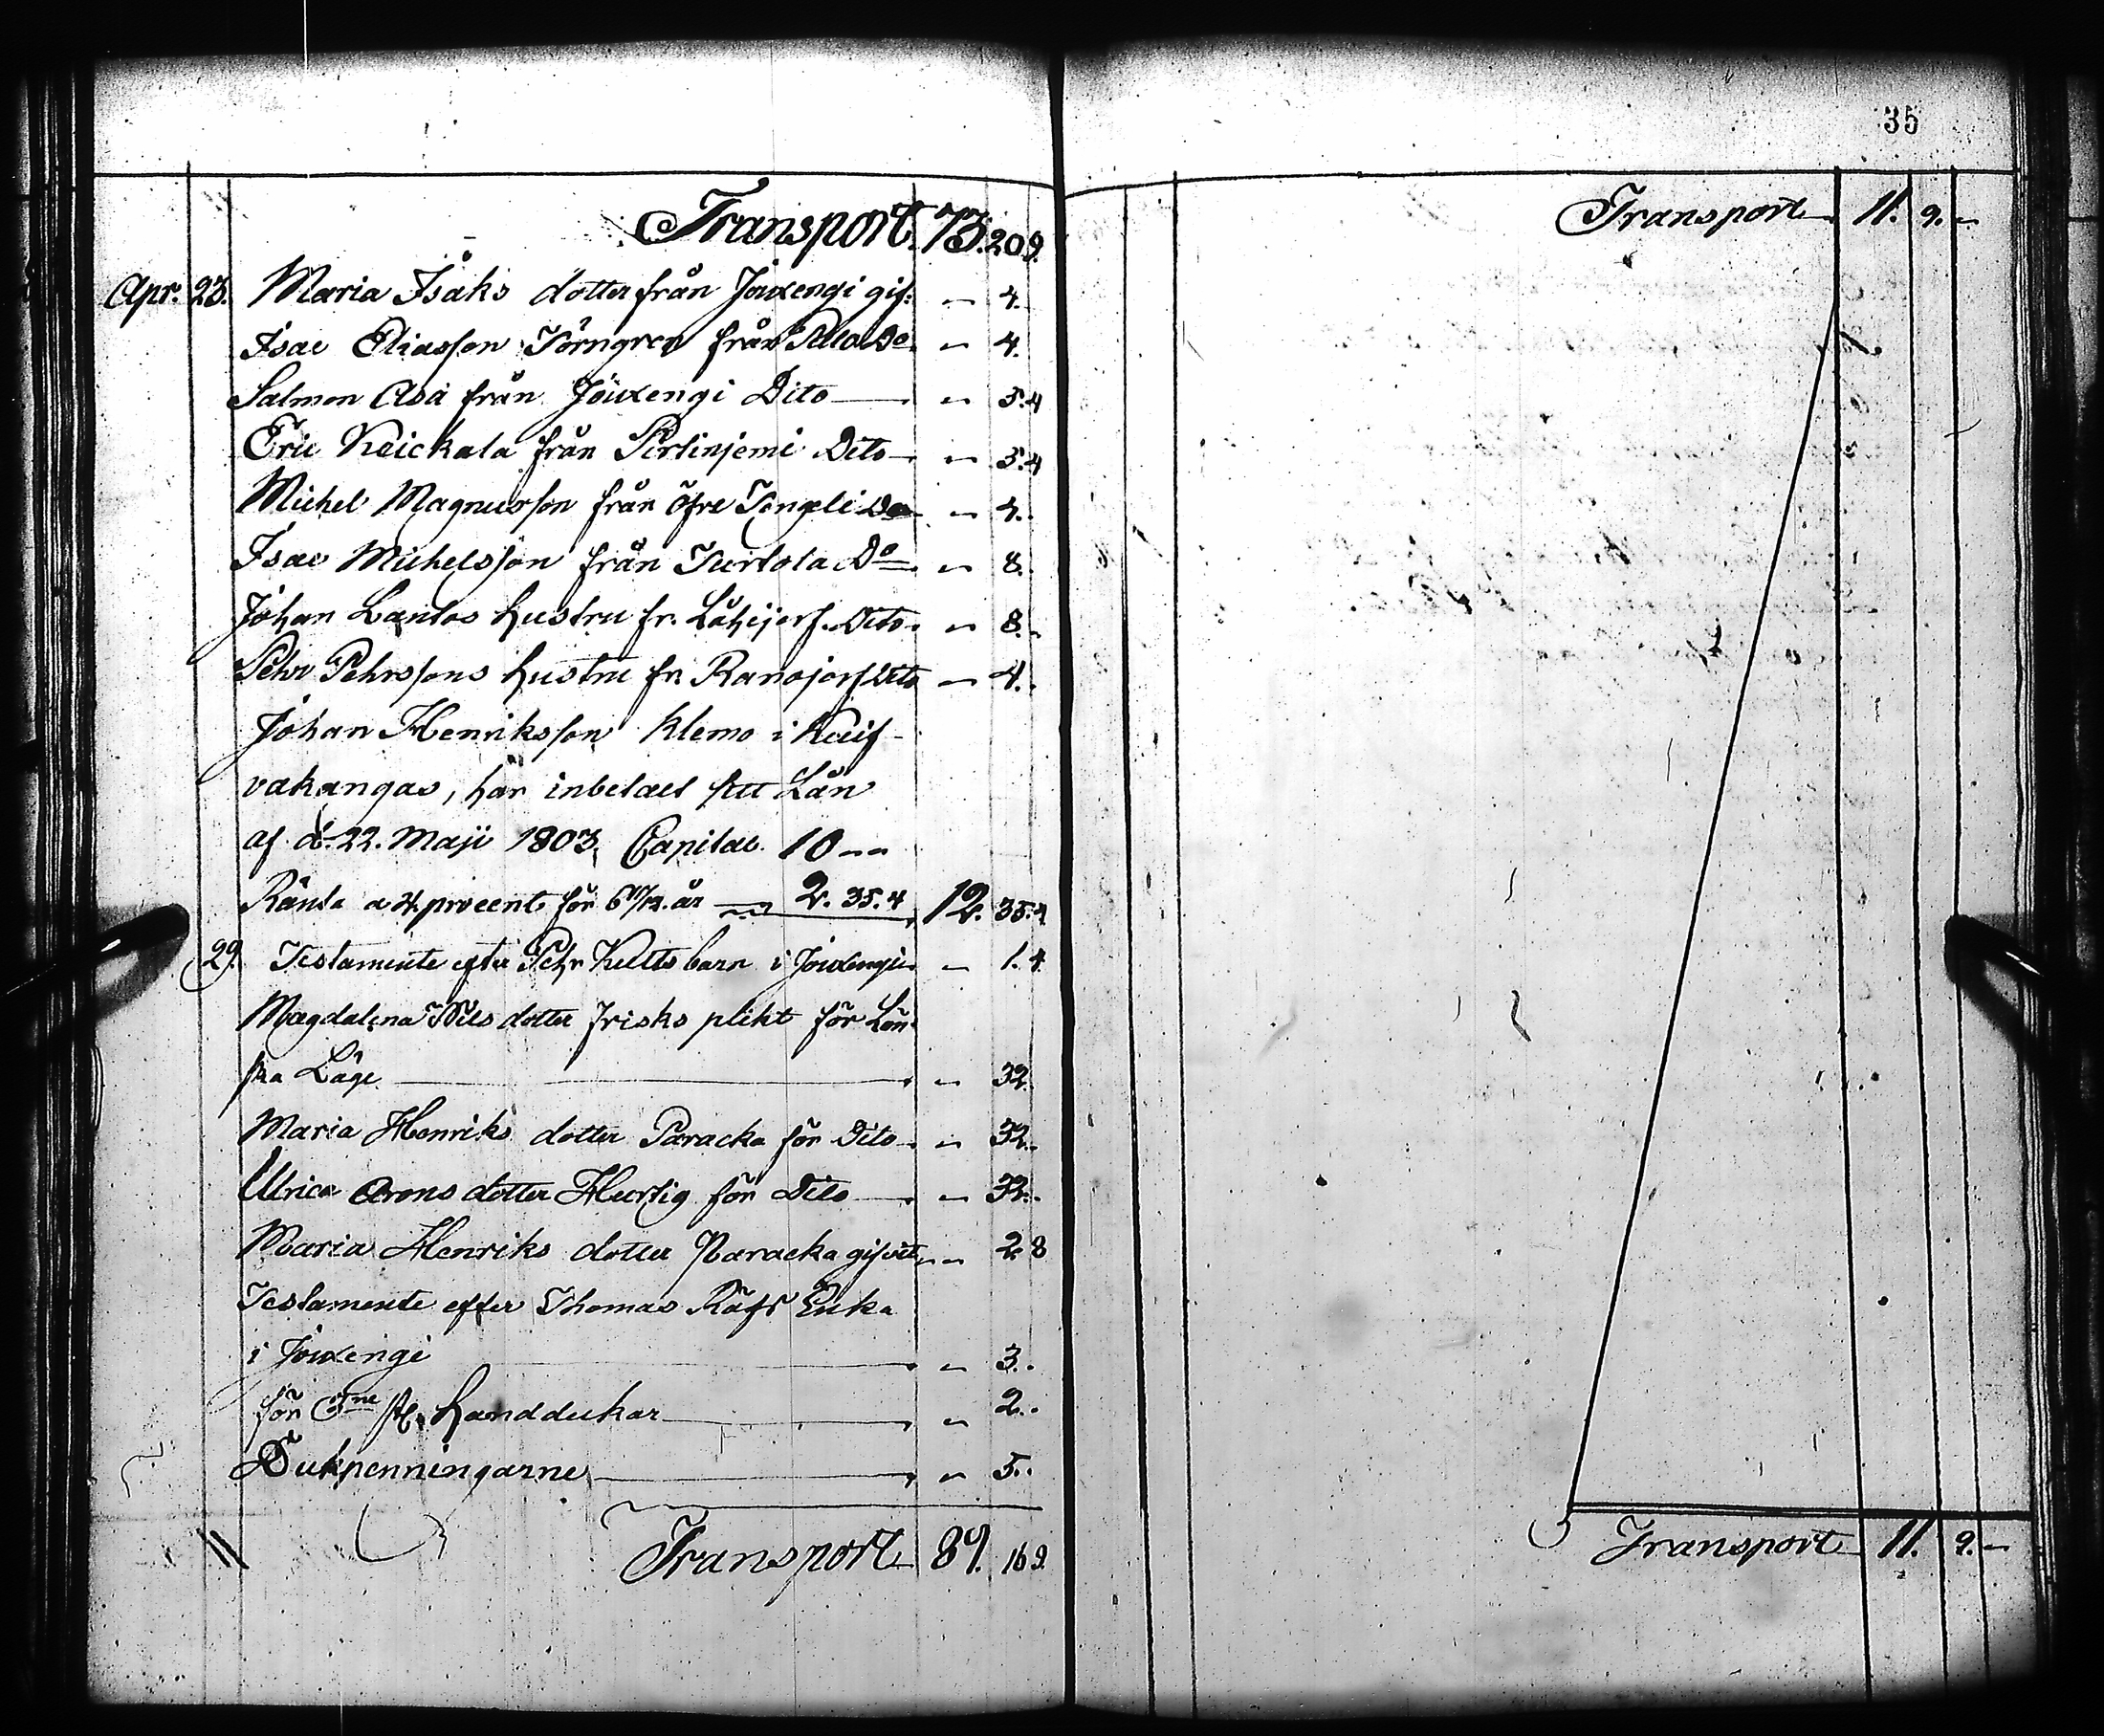 Transport 73. 20 9.
Apr. 23. Maria Isaks dotter från Jouxengi gif. " 4.
Isac Eliasson Törngren från Pello Do " 4.
Salmon Asa från Jouxengi Dito " 5. 4
Eric Keickala från Pirtinjemi Dito " 5. 4
Michel Magnusson från öfre Tengeli Do " 4.
Isac Michelsson från Turtola Do " 8.
Johan Lantos hustru fr. Dito " 8.
Pehr Pehrssons hustru fr. Dito " 4.
Johan Henriksson Klemo i
vakangas, har inbetalt sitt Lån
af d. 22. Maji 1803. Capital 10 " "
Ränta a 4 procent för 6 11/12 år 2. 35. 4 12. 35. 4
29. Testamente efter Pehr barn i Jouxengi " 1. 4
Magdalena Nils dotter Frisks plikt för Lön
ska Läge " 32.
Maria Henriks dotter Paracka för Dito " 32.
Ulrica Arons dotter Hurtig för Dito " 32.
Maria Henriks dotter Paracka gifvit " 2. 8
Testamente efter Thomas Räfs Enka
i Jouxengi " 3.
för st. Handdukar " 2.
Dukpenningarne " 5.
Transport 89. 16 9.
35
Transport 11. 9. "
Transport 11. 9. "